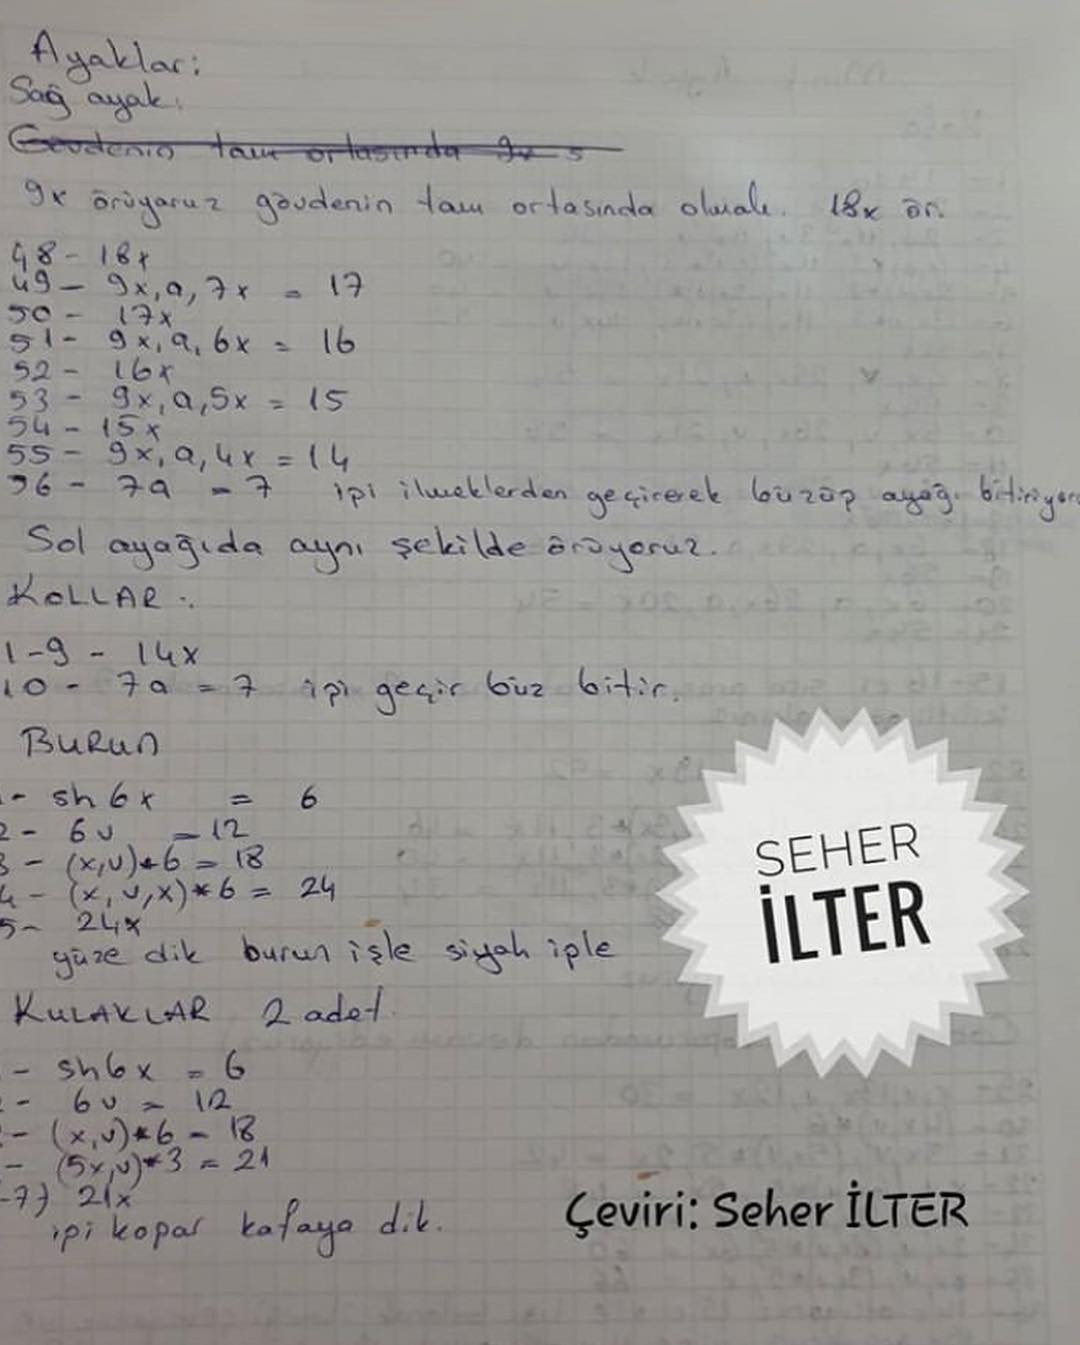 Ayaklar:
Sağ ayak:
Gövdenin tam ortasında 9x 5
9x örüyoruz gövdenin tam ortasında olmalı. 18x ör.
48 - 18x
49 - 9x, a, 7x = 17
50 - 17x
51 - 9x, a, 6x = 16
52 - 16x
53 - 9x, a, 5x = 15
54 - 15x
55 - 9x, a, 4x = 14
56 - 7a = 7 ipi ilmeklerden geçirerek büzüp ayağı bitiriyoru
Sol ayağıda aynı şekilde örüyoruz.
KOLLAR:
1-9 - 14x
10 - 7a = 7 ipi geçir büz bitir.
BURUN
- sh 6x = 6
2 - 6v = 12
3 - (x,v)*6 = 18
4 - (x,v,x)*6 = 24
5 - 24x
yüze dik burun işle siyah iple
KULAKLAR 2 adet.
- sh6x = 6
- 6v = 12
- (x,v)*6 = 18
- (5x,v)*3 = 21
-7) 21x
ipi kopar kafaya dik.
SEHER
İLTER
Çeviri: Seher İLTER